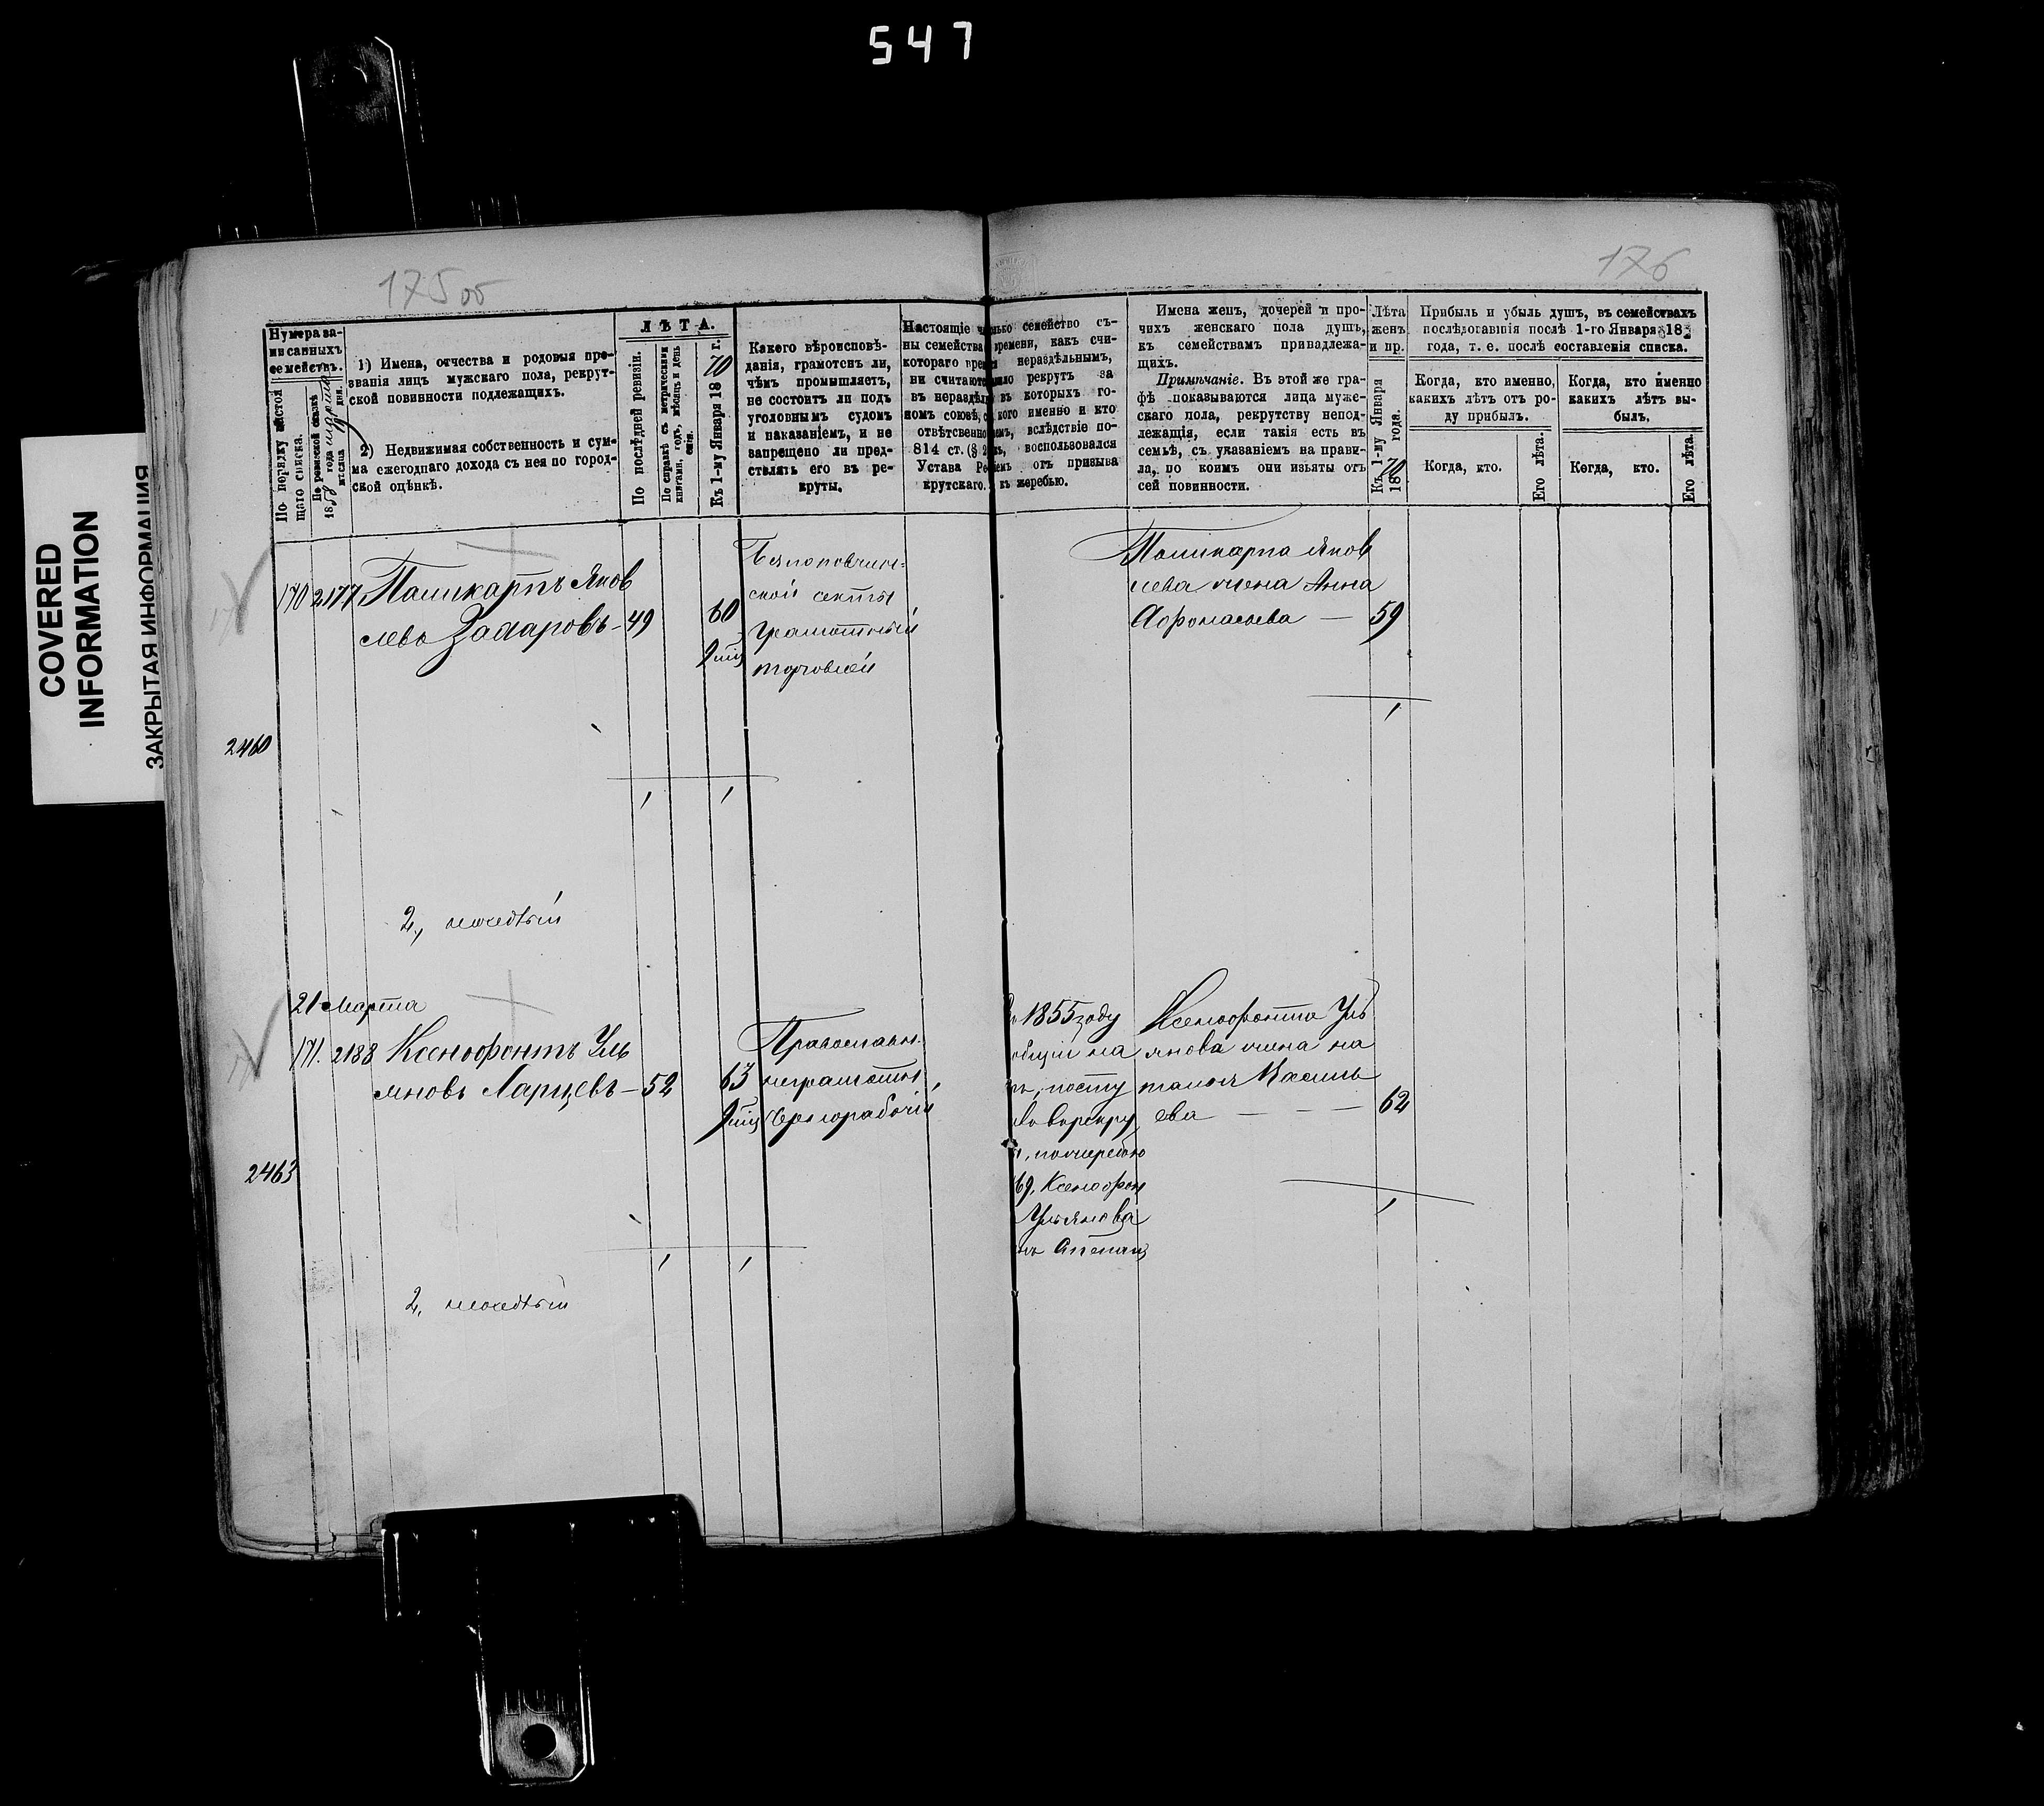 547
175 об
176
COVERED
INFORMATION
ЗАКРЫТАЯ ИНФОРМАЦИЯ
Нумера за-
писанныхъ
семействъ.
По порядку настоя
щаго списка.
По ревизской сказкѣ
1858 года
мѣсяца 19 дня.
1) Имена, отчества и родовыя про-
званія лицъ мужскаго пола, рекрут-
ской повинности подлежащихъ.
2) Недвижимая собственность и сум-
ма ежегоднаго дохода съ нея по город-
ской оцѣнкѣ.
ЛѢТА.
По послѣдней ревизіи.
По справкѣ съ метрическими
книгами, годъ, мѣсяцъ и день
Къ 1-му Января 1870 г.
Какого вѣроисповѣ-
данія, грамотенъ ли,
чѣмъ промышляетъ,
не состоитъ ли подъ
уголовнымъ судомъ
и наказаніемъ, и не
запрещено ли пред-
ставлять его въ ре-
круты.
Настоящіе
ны семейства
котораго время
ни считают
въ нераздѣл
номъ союзѣ, с
отвѣтственно
814 ст. (§ 2
Устава Ре
крутскаго.
лько семейство съ-
времени, какъ счи-
нераздѣльнымъ,
ило рекрутъ за
въ которыхъ го-
кого именно и кто
вслѣдствіе по-
воспользовался
отъ призыва
къ жеребью.
Имена женъ, дочерей и про-
чихъ женскаго пола душъ,
къ семействамъ принадлежа-
щихъ.
Примѣчаніе. Въ этой же гра-
фѣ показываются лица муже-
скаго пола, рекрутству непод-
лежащія, если такія есть въ
семьѣ, съ указаніемъ на прави-
ла, по коимъ они изъяты отъ
сей повинности.
Лѣта
женъ
и пр.
Къ 1-му Января
1870 года.
Прибыль и убыль душъ, въ семействахъ
послѣдовавшія послѣ 1-го Января 18
года, т. е. послѣ составленія списка.
Когда, кто именно,
какихъ лѣтъ отъ ро-
ду прибылъ.
Когда, кто именно
какихъ лѣтъ вы-
былъ.
Когда, кто.
Его лѣта.
Когда, кто.
Его лѣта.
170 2177 Поликарпъ Яков
левъ Захаровъ - 49
60
9 мѣц
Безпоповщин-
ской секты
грамотный
торговлей
Поликарпа Яков
лева жена Анна
Афонасьева — 59
2460
2,
21 Марта
171. 2188 Ксенофонтъ Уль
яновъ Ларцевъ - 52
63
9 мѣц
Православн.
неграмотн
чернорабочій
1855 году
общій на
посту
рекру
69, Ксенофон
Ульянова
Ксенофонта Уль
янова жена На
талья Василь
ева — — — 62
2463
2,